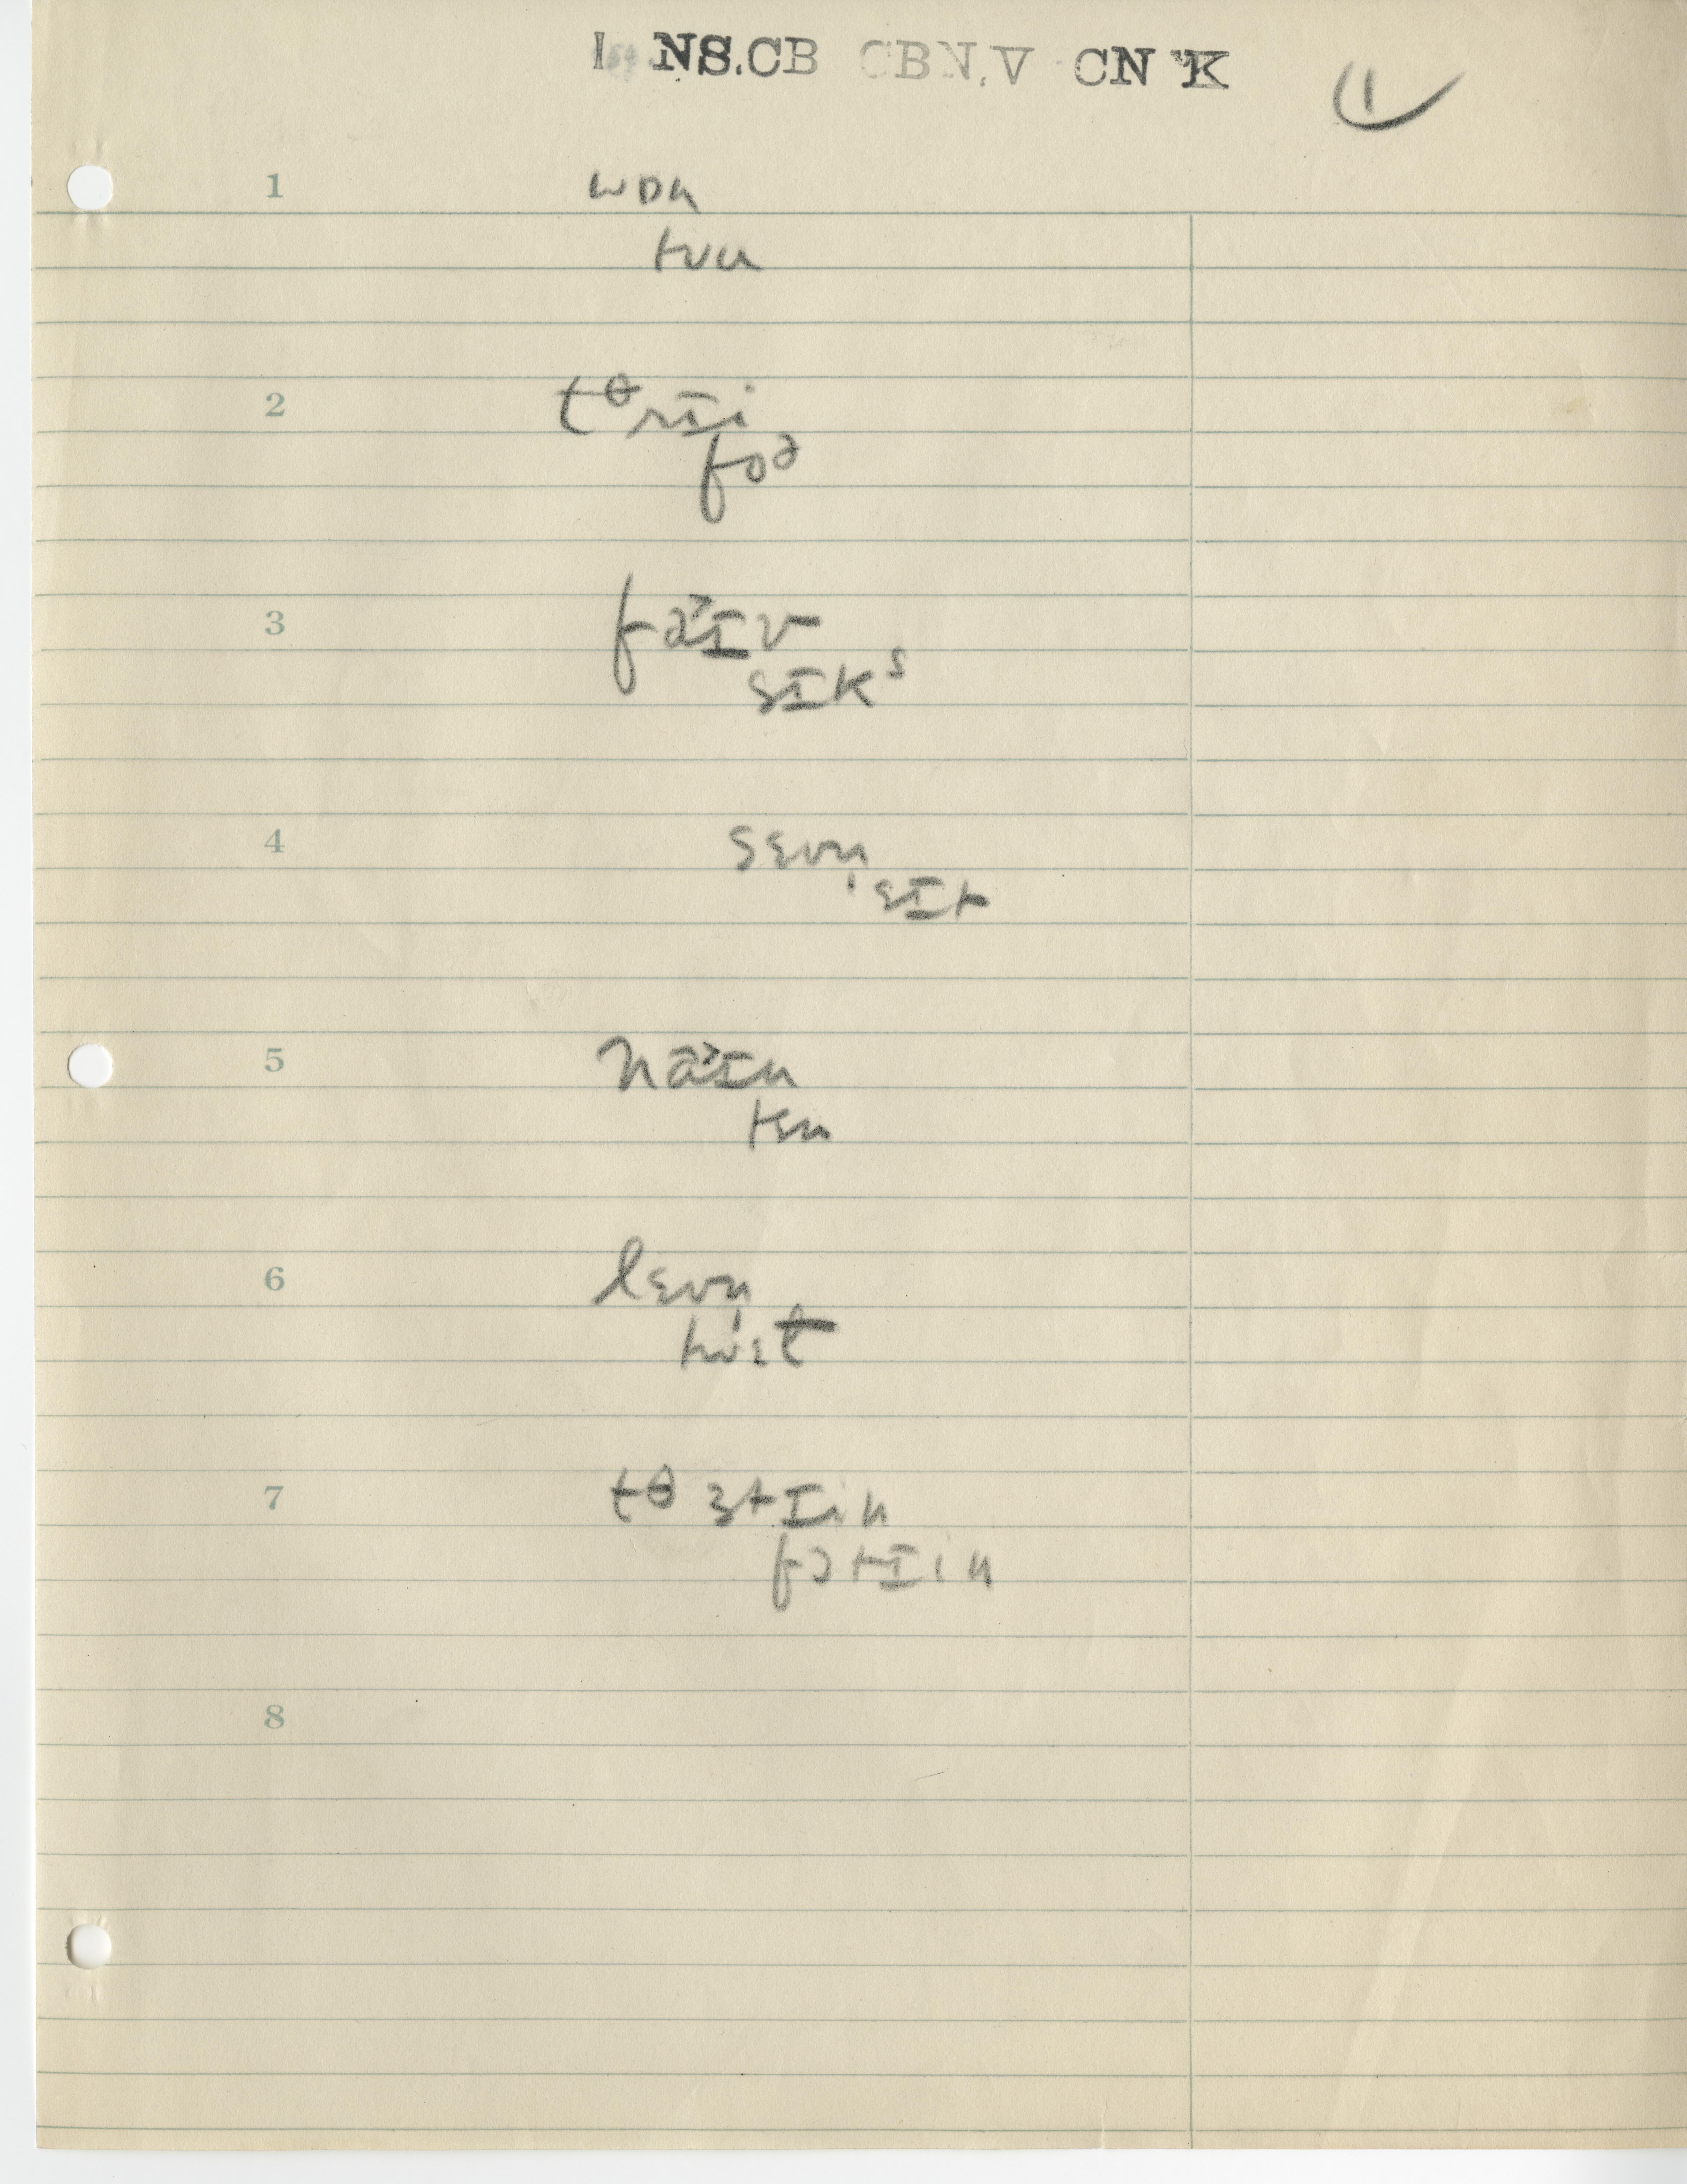 NS.CB CBN.V CN K
1
1
wɒn
tuu
2
tᶿrɪi
foə
3
fa˃ɪv
sɪkˢ
4
sɛvn̩
ɛɪt
5
na˃ɪn
tɛn
6
lɛvn̩
7
tθɜtɪin
fɔtɪin
8